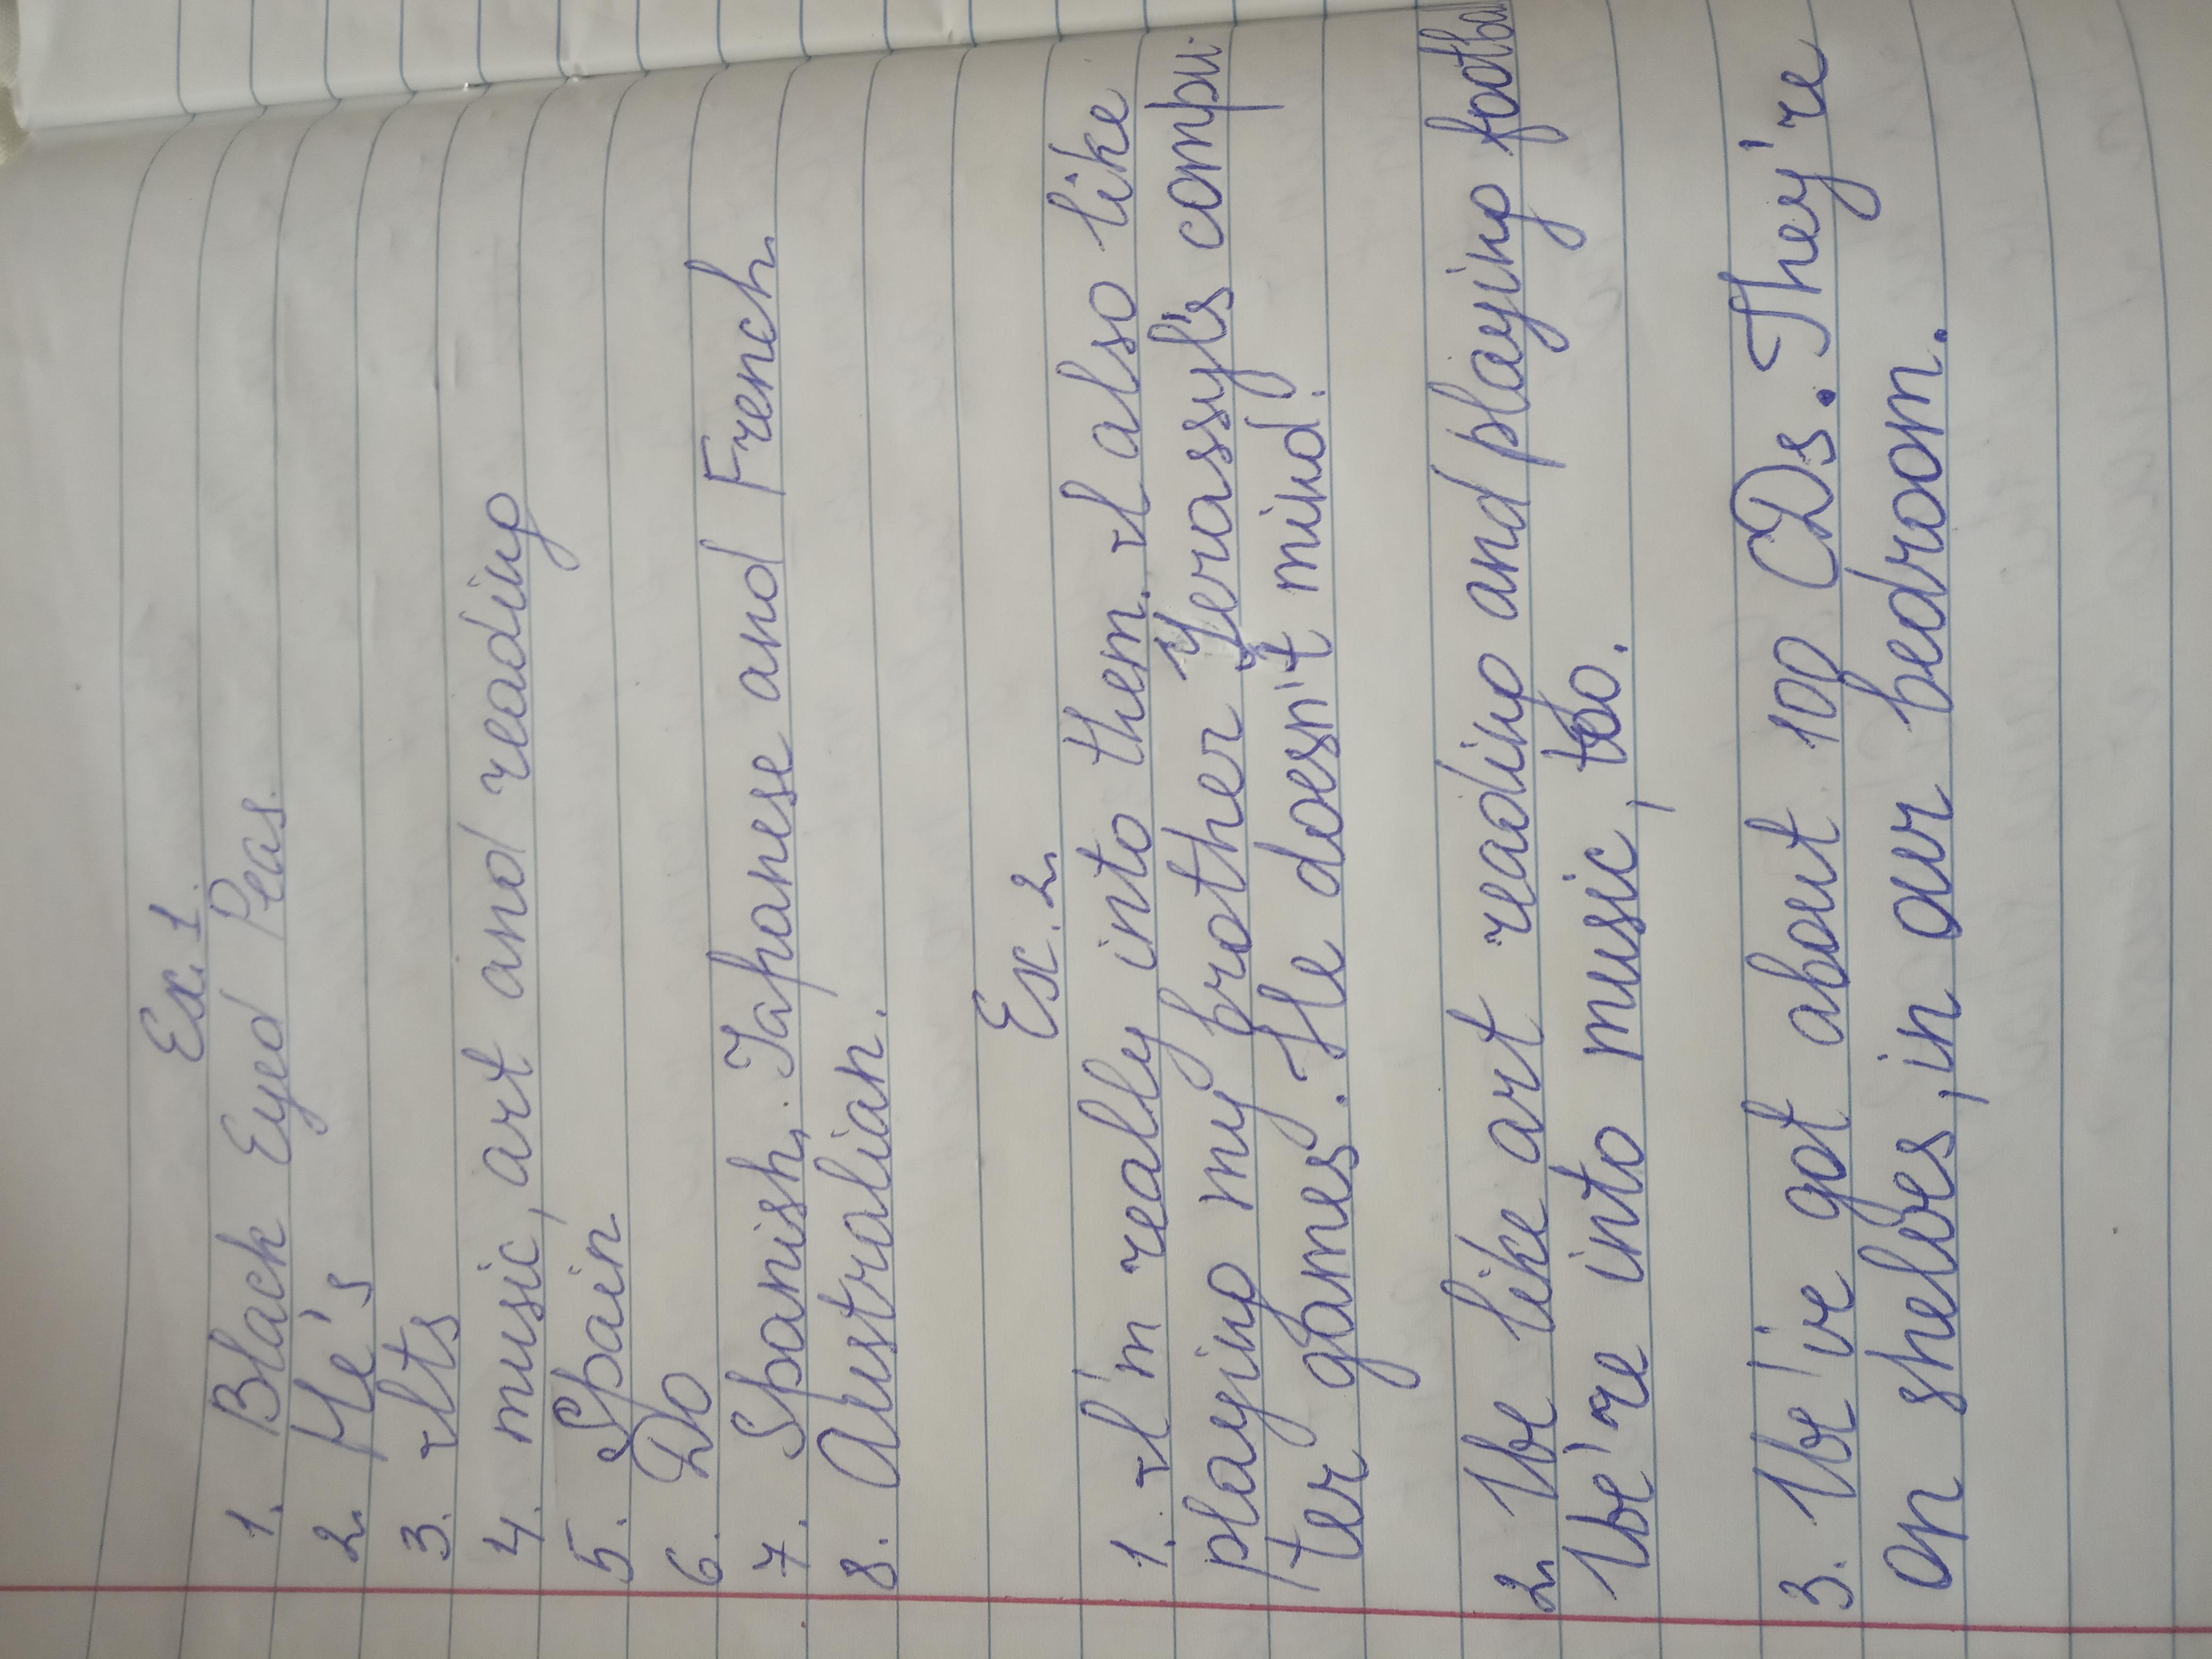 Ex. 1
1. Black Eyed Peas.
2. He's
3. Its
4. music, art and reading
5. Spain
6. Do
7. Spanish. Japanese and French
8. Australian.
Ex. 2
1. I'm really into them. I also like
playing my brother Yerassyl's compu-
ter games. He doesn't mind!
2. We like art reading and playing footba
We're into music, too.
3. We've got about 100 CDs. They're
on shelves, in our bedroom.